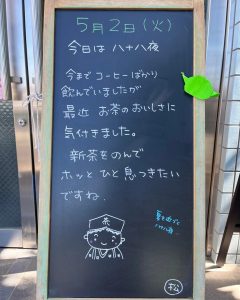 5月2日(火)
今日は 八十八夜
今まで コーヒーばかり
飲んでいましたが
最近 お茶のおいしさに
気付きました。
新茶をのんで
ホッと ひと息つきたい
ですね。
茶
夏も近づく
八十八夜
松